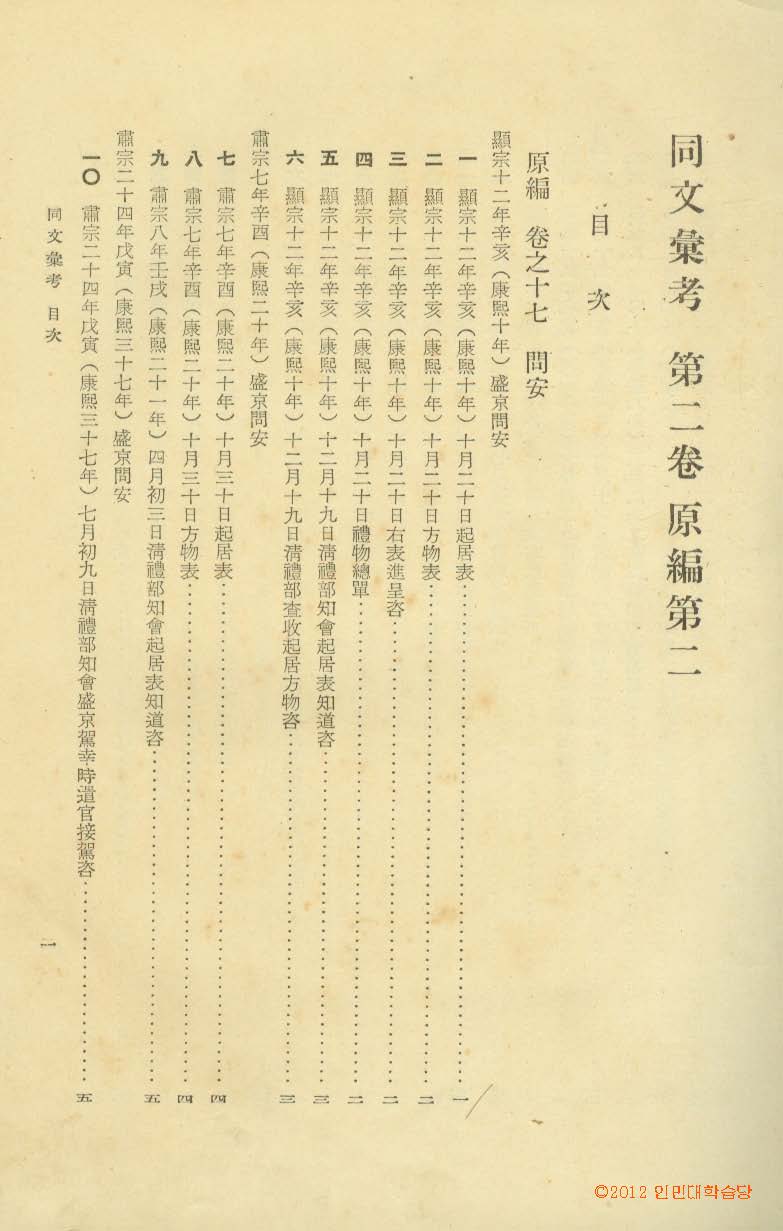 同文彙考 第二卷 原編第二
目次
原編 卷之十七 問安
顯宗十二年辛亥(康熙十年)盛京問安
一 顯宗十二年辛亥(康熙十年)十月二十日起居表……一
二 顯宗十二年辛亥(康熙十年)十月二十日方物表……二
三 顯宗十二年辛亥(康熙十年)十月二十日右表進呈咨……二
四 顯宗十二年辛亥(康熙十年)十月二十日禮物總單……二
五 顯宗十二年辛亥(康熙十年)十二月十九日淸禮部知會起居表知道咨……三
六 顯宗十二年辛亥(康熙十年)十二月十九日淸禮部查收起居方物咨……三
肅宗七年辛酉(康熙二十年)盛京問安
七 肅宗七年辛酉(康熙二十年)十月三十日起居表……四
八 肅宗七年辛酉(康熙二十年)十月三十日方物表……四
九 肅宗八年壬戌(康熙二十一年)四月初三日淸禮部知會起居表知道咨……五
肅宗二十四年戊寅(康熙三十七年)盛京問安
一〇 肅宗二十四年戊寅(康熙三十七年)七月初九日淸禮部知會盛京駕幸時遣官接駕咨……五
同文彙考 目次
一
©2012 인민대학습당